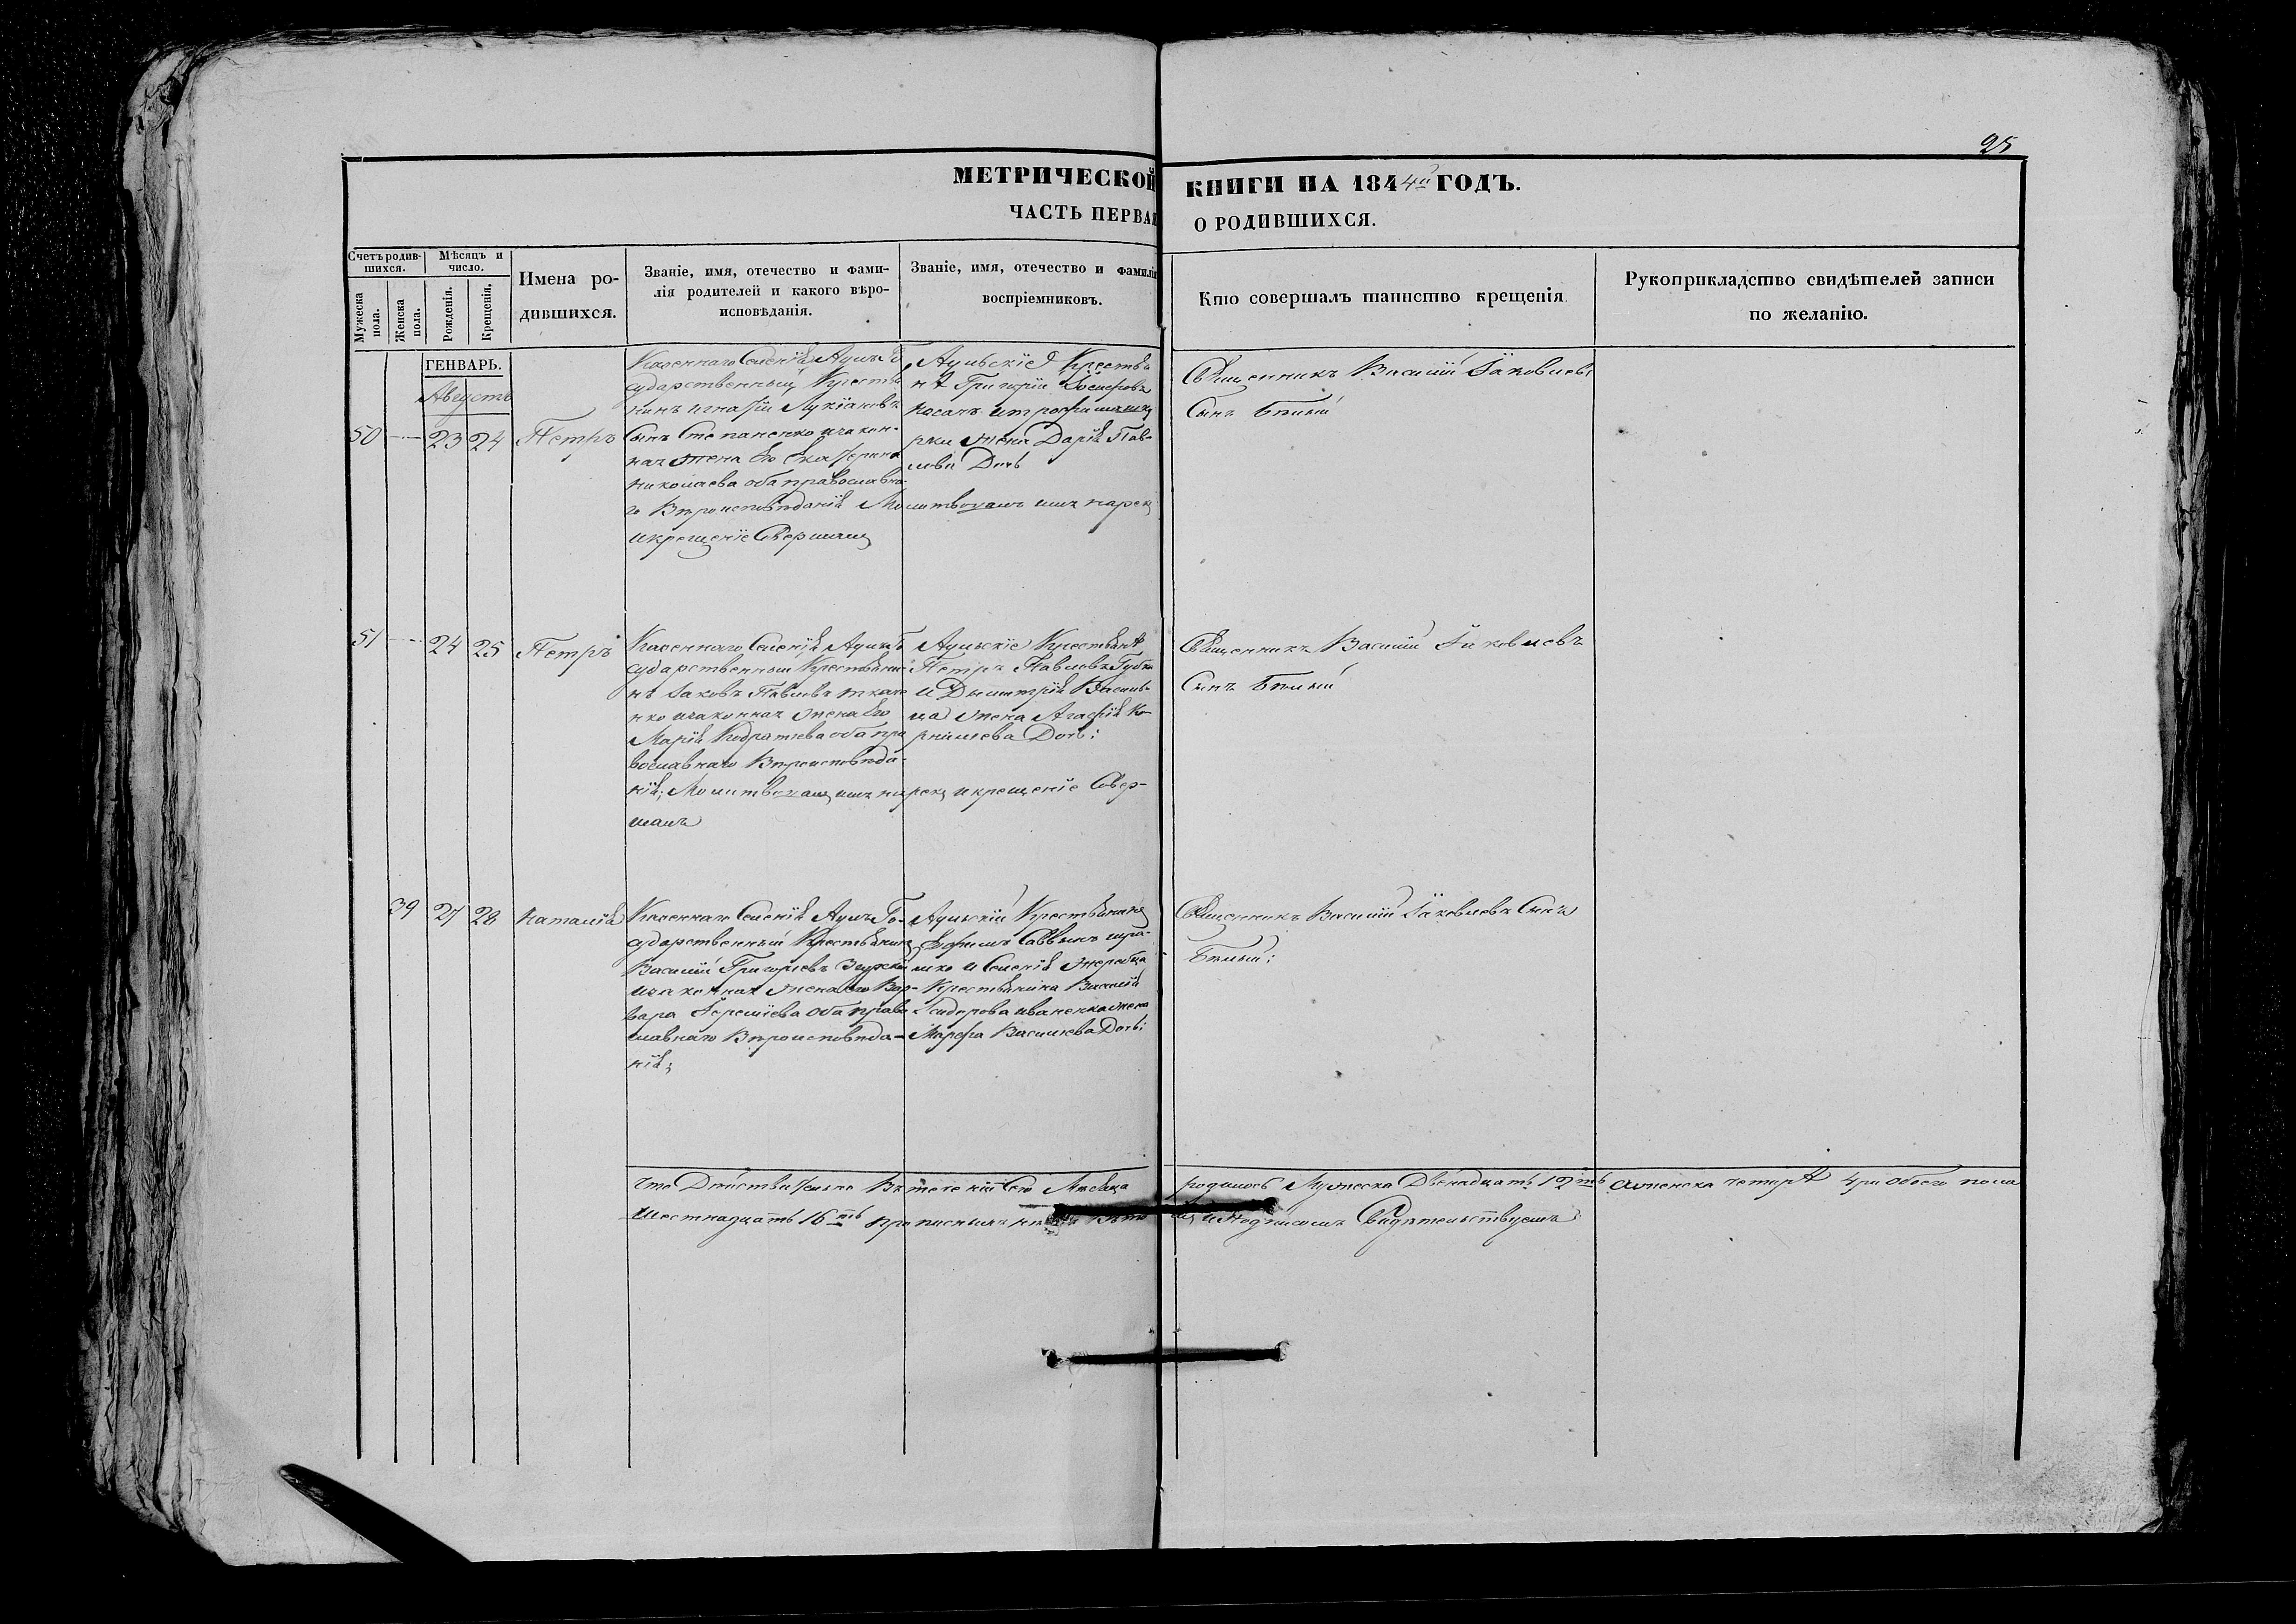 25
МЕТРИЧЕСКОЙ КНИГИ НА 1844й ГОДЪ.
ЧАСТЬ ПЕРВАЯ О РОДИВШИХСЯ.
Счетъ родив-
шихся.
Мужеска пола.
Женска пола.
Мѣсяцъ и
число.
Рожденія.
Крещенія.
Имена ро-
дившихся.
Званіе, имя, отечество и фами-
лія родителей и какого вѣро-
исповѣданія.
Званіе, имя, отечество и фамилія
воспріемниковъ.
Кто совершалъ таинство крещенія.
Рукоприкладство свидѣтелей записи
по желанію.
ГЕНВАРЬ.
Августъ
50 23 24 Петръ
Казеннаго Селенія Аулъ Го
сударственный Крестья
нинъ Игнатій Лукіановъ
Сынъ Степаненко и закон-
ная жена Его Екатерина
Николаева оба православна
го Вѣроисповѣданія Молитвовалъ имя нарекъ
и крещеніе Совершилъ
Аульскіе Крестья
нѣ Григорій Іосифовъ
жена Дарія Пав-
лова Дочь
Священникъ Василій Іаковлевъ
Сынъ Бѣлый
51 24 25 Петръ
Казеннаго Селенія Аулъ Го
сударственный Крестьяни
нъ Іаковъ Павловъ Ткаче
нко и законная жена Его
Марія Кодратіева оба пра
вославнаго Вѣроисповѣда-
нія; Молитвовалъ имя нарекъ и крещеніе Совер-
шалъ
Аульскіе Крестьянѣ
Петръ Павловъ
и Дымитрія
жена Агафія Ко-
рніліева Дочь:
Священникъ Василій Іаковлевъ
Сынъ Бѣлый
39 27 28 Наталія
Казеннаго Селенія Аулъ Го-
сударственный Крестьянинъ
Василій Григоріевъ
и законная жена его Вар-
вара Іереміева оба право
славнаго Вѣроисповѣда-
нія;
Аульскій Крестьянинъ
Ефимъ Саввинъ
и Селенія Жеребца
Крестьянина Василія
Сидорова Иваненка жена
Марфа Василіева Дочь:
Священникъ Василій Іаковлевъ Сынъ
Бѣлый:
Что Дѣйствительно Въ теченіи Сего Месяца родилось Мужеска Двенадцать 12ть а женска четырѣ 4ри обоего пола
Шестнадцать 16ть подписомъ Свидѣтельствуемъ